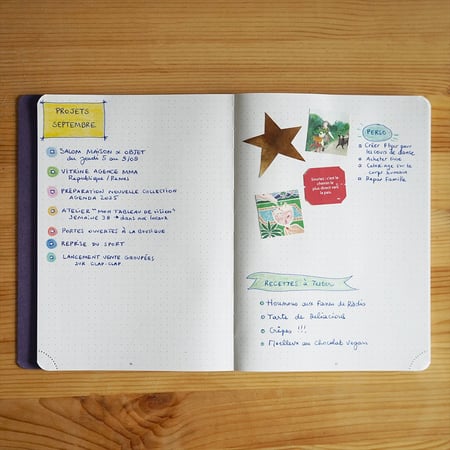 PROJETS
SEPTEMBRE
SALON MAISON & OBJET
du jeudi 5 au 9/09
VITRINE AGENCE MMA
République / Rennes
PRÉPARATION NOUVELLE COLLECTION
AGENDA 2025
ATELIER "MON TABLEAU DE VISION"
SEMAINE 38 → dans nos locaux
PORTES OUVERTES À LA BOUTIQUE
REPRISE DU SPORT
LANCEMENT VENTE GROUPÉES
SUR CLAP-CLAP
PERSO
Créer Flyer pour
les cours de danse
Acheter
Coloriage sur le
corps humain
Repas Famille
Souriez : c'est le
chemin le
plus direct vers
la paix.
RECETTES à Tester
Houmous aux Fanes de Radis
Tarte de
Crêpes !!!
Moelleux au Chocolat Vegan